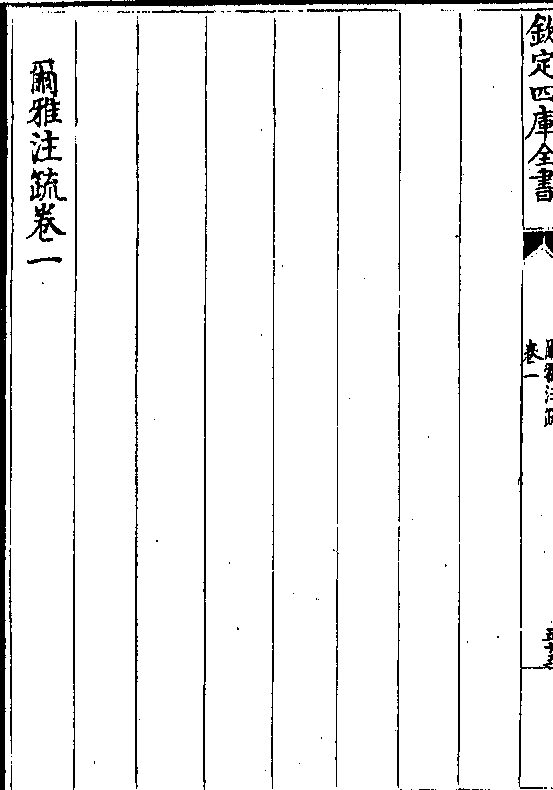 欽定四庫全書
爾雅注疏
卷一
爾雅注疏卷一